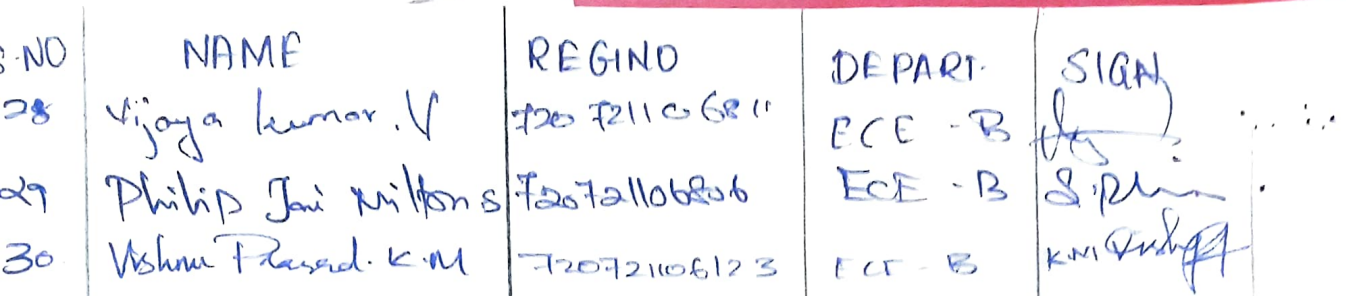 S.NO NAME REGINO DEPART. SIGN
28 Vijaya kumar. V 720721106811 ECE - B
29 Philip Jai Miltons 720721106806 ECE - B S.Ph
30 Vishnu Prasad. K.M 720721106123 ECE - B K.M